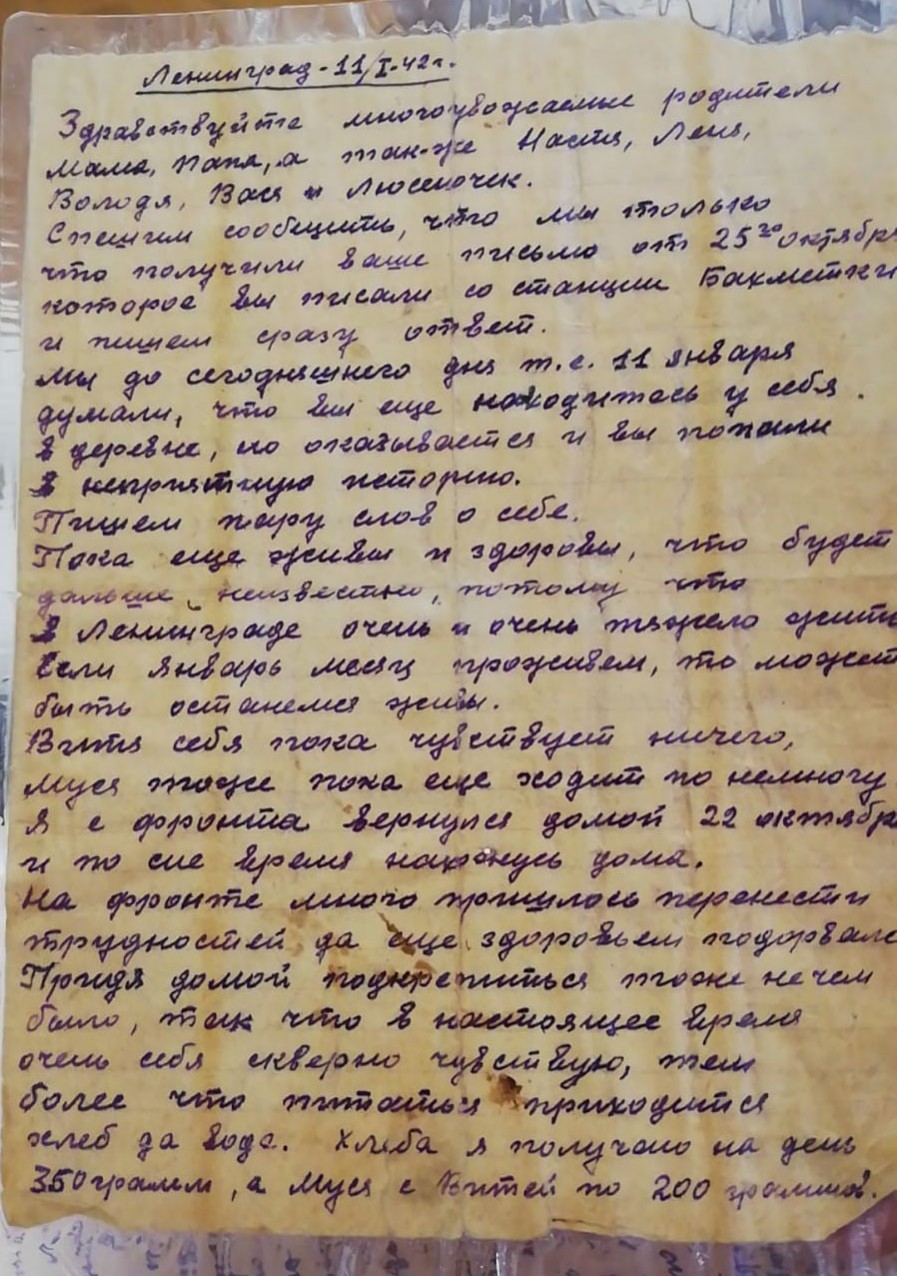 Ленинград - 11/I-42г.
Здравствуйте многоуважаемые родители
мама, папа, а так-же Настя, Леня,
Володя, Вася и Люсеночек.
Спешим сообщить, что мы только
что получили ваше письмо от 25го октября
которое вы писали со станции Бахметки
и пишем сразу ответ.
Мы до сегодняшнего дня т.е. 11 января
думали, что вы еще находитесь у себя
в деревне, но оказывается и вы попали
в неприятную историю.
Пишем пару слов о себе.
Пока еще живы и здоровы, что будет
дальше, неизвестно, потому что
в Ленинграде очень и очень тяжело жить
Если январь месяц проживем, то может
быть останемся живы.
Витя себя пока чувствует ничего,
Муся тоже пока еще ходит по немногу
Я с фронта вернулся домой 22 октябр
и по сие время нахожусь дома.
На фронте много пришлось перенести
трудностей да еще здоровьем подорвалс
Придя домой подкрепиться тоже нечем
было, так что в настоящее время
очень себя скверно чувствую, тем
более что питаться приходится
хлеб да вода. Хлеба я получаю на день
350 грамм, а Муся с Витей по 200 граммов.